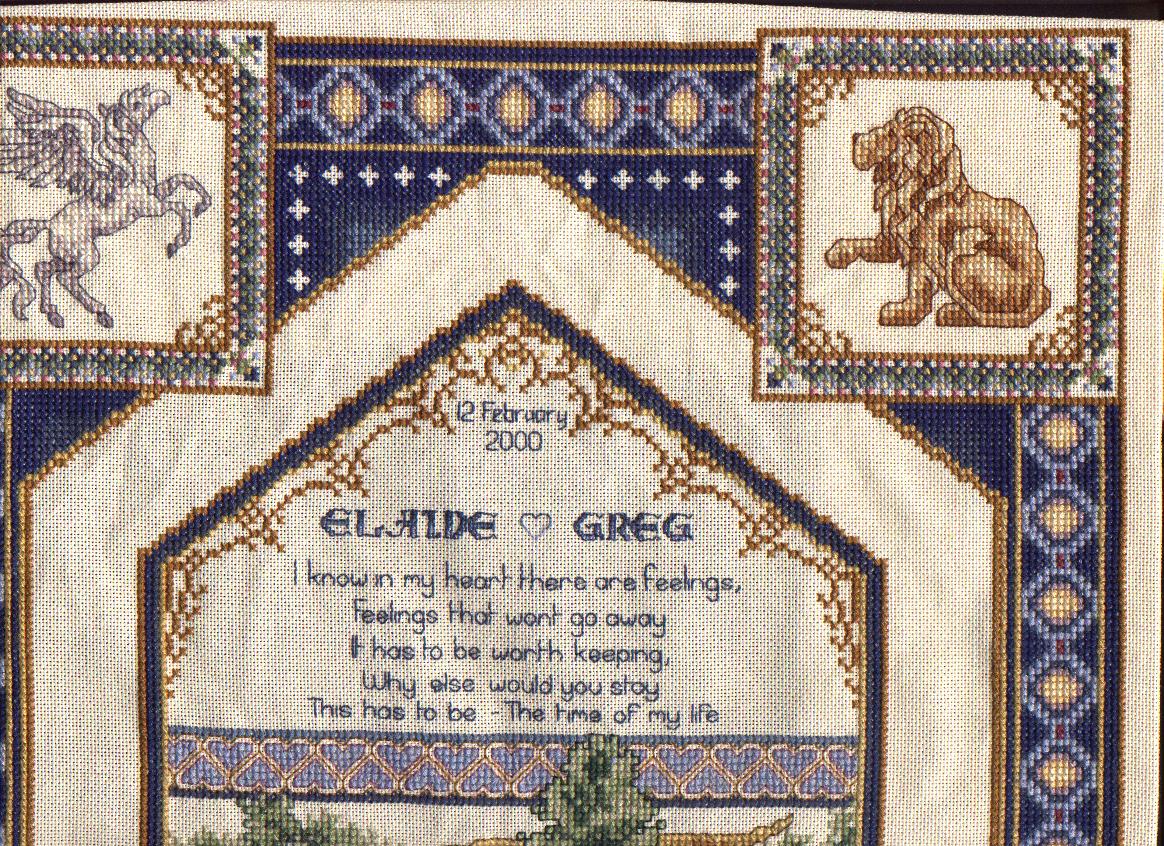 12 February
2000
ELAINE ♡ GREG
I know in my heart there are feelings,
Feelings that wont go away
It has to be worth keeping,
Why else would you stay
This has to be - The time of my life